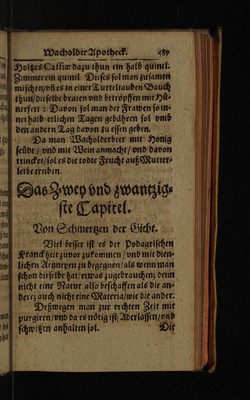 Wacholder Apotheck. 489
Holtzes Cassiæ dazu thun ein halb quintl.
Zimmerein quintl. Dieses sol man zusamen
mischen/uñ es in einer Turteltauben Bauch
thun/dieselbe braten und betröpffen mit Hü-
nerfett: Davon sol man der Frawen so in-
nerhalb etlichen Tagen gebähren sol vmb
den andern Tag davon zu essen geben.
Da man Wacholderbeer mit Honig
seüdt/ vnd mit Wein anmacht/vnd davon
trincket/sol es die todte Frucht auß Mutter-
leibe treiben.
Das Zwey vnd zwantzig-
ste Capitel.
Von Schmertzen der Gicht.
Viel besser ist es der Podagrischen
Kranckheit zuvor zukommen/vnd mit dien-
lichen Artzneyen zu begegnen/als wenn man
schon dieselbe hat/etwas zugebrauchen; denn
nicht eine Natur also beschaffen als die an-
der; auch nicht eine Materia/wie die ander.
Deßwegen man zur rechten Zeit mit
purgiren/vnd da es nötig ist/Aderlassen/vnd
schwitzen anhalten sol.
Die